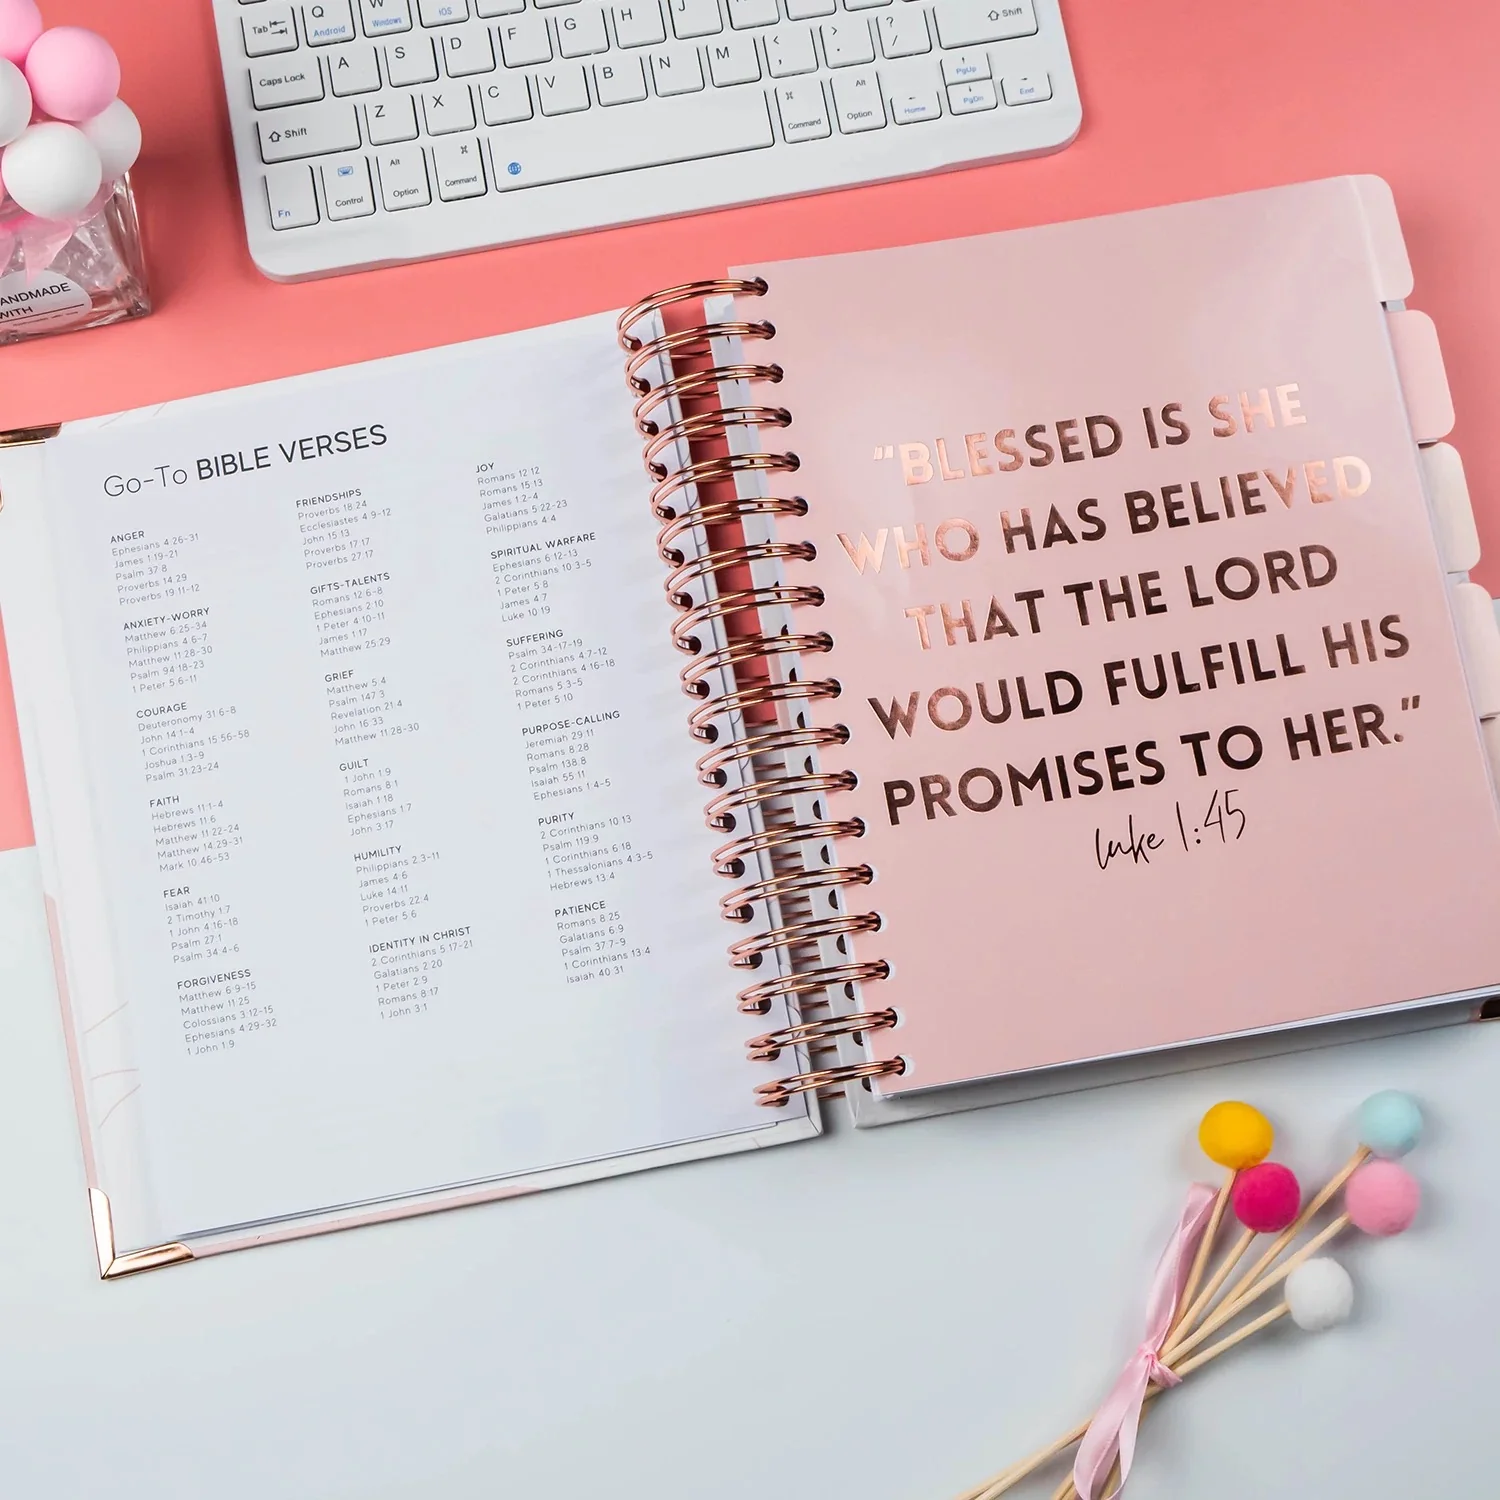 Tab
Q
Android
W
Windows
iOS
Caps Lock
A
S
D
F
G
H
J
Shift
Shift
Z
X
C
V
B
N
M
<
,
>
.
?
/
Fn
Control
Alt
Option
Command
Command
Alt
Option
Home
PgUp
PgDn
End
ANDMADE
WITH
Go-To BIBLE VERSES
ANGER
Ephesians 4:26-31
James 1:19-21
Psalm 37:8
Proverbs 14:29
Proverbs 19:11-12
ANXIETY-WORRY
Matthew 6:25-34
Philippians 4:6-7
Matthew 11:28-30
Psalm 94:18-23
1 Peter 5:6-11
COURAGE
Deuteronomy 31:6-8
John 14:1-4
1 Corinthians 15:56-58
Joshua 1:3-9
Psalm 31:23-24
FAITH
Hebrews 11:1-4
Hebrews 11:6
Matthew 11:22-24
Matthew 14:29-31
Mark 10:46-53
FEAR
Isaiah 41:10
2 Timothy 1:7
1 John 4:16-18
Psalm 27:1
Psalm 34:4-6
FORGIVENESS
Matthew 6:9-15
Matthew 11:25
Colossians 3:12-15
Ephesians 4:29-32
1 John 1:9
FRIENDSHIPS
Proverbs 18:24
Ecclesiastes 4:9-12
John 15:13
Proverbs 17:17
Proverbs 27:17
GIFTS-TALENTS
Romans 12:6-8
Ephesians 2:10
1 Peter 4:10-11
James 1:17
Matthew 25:29
GRIEF
Matthew 5:4
Psalm 147:3
Revelation 21:4
John 16:33
Matthew 11:28-30
GUILT
1 John 1:9
Romans 8:1
Isaiah 1:18
Ephesians 1:7
John 3:17
HUMILITY
Philippians 2:3-11
James 4:6
Luke 14:11
Proverbs 22:4
1 Peter 5:6
IDENTITY IN CHRIST
2 Corinthians 5:17-21
Galatians 2:20
1 Peter 2:9
Romans 8:17
1 John 3:1
JOY
Romans 12:12
Romans 15:13
James 1:2-4
Galatians 5:22-23
Philippians 4:4
SPIRITUAL WARFARE
Ephesians 6:12-13
2 Corinthians 10:3-5
1 Peter 5:8
James 4:7
Luke 10:19
SUFFERING
Psalm 34-17-19
2 Corinthians 4:7-12
2 Corinthians 4:16-18
Romans 5:3-5
1 Peter 5:10
PURPOSE-CALLING
Jeremiah 29:11
Romans 8:28
Psalm 138:8
Isaiah 55:11
Ephesians 1:4-5
PURITY
2 Corinthians 10:13
Psalm 119:9
1 Corinthians 6:18
1 Thessalonians 4:3-5
Hebrews 13:4
PATIENCE
Romans 8:25
Galatians 6:9
Psalm 37:7-9
1 Corinthians 13:4
Isaiah 40:31
"BLESSED IS SHE
WHO HAS BELIEVED
THAT THE LORD
WOULD FULFILL HIS
PROMISES TO HER."
Luke 1:45